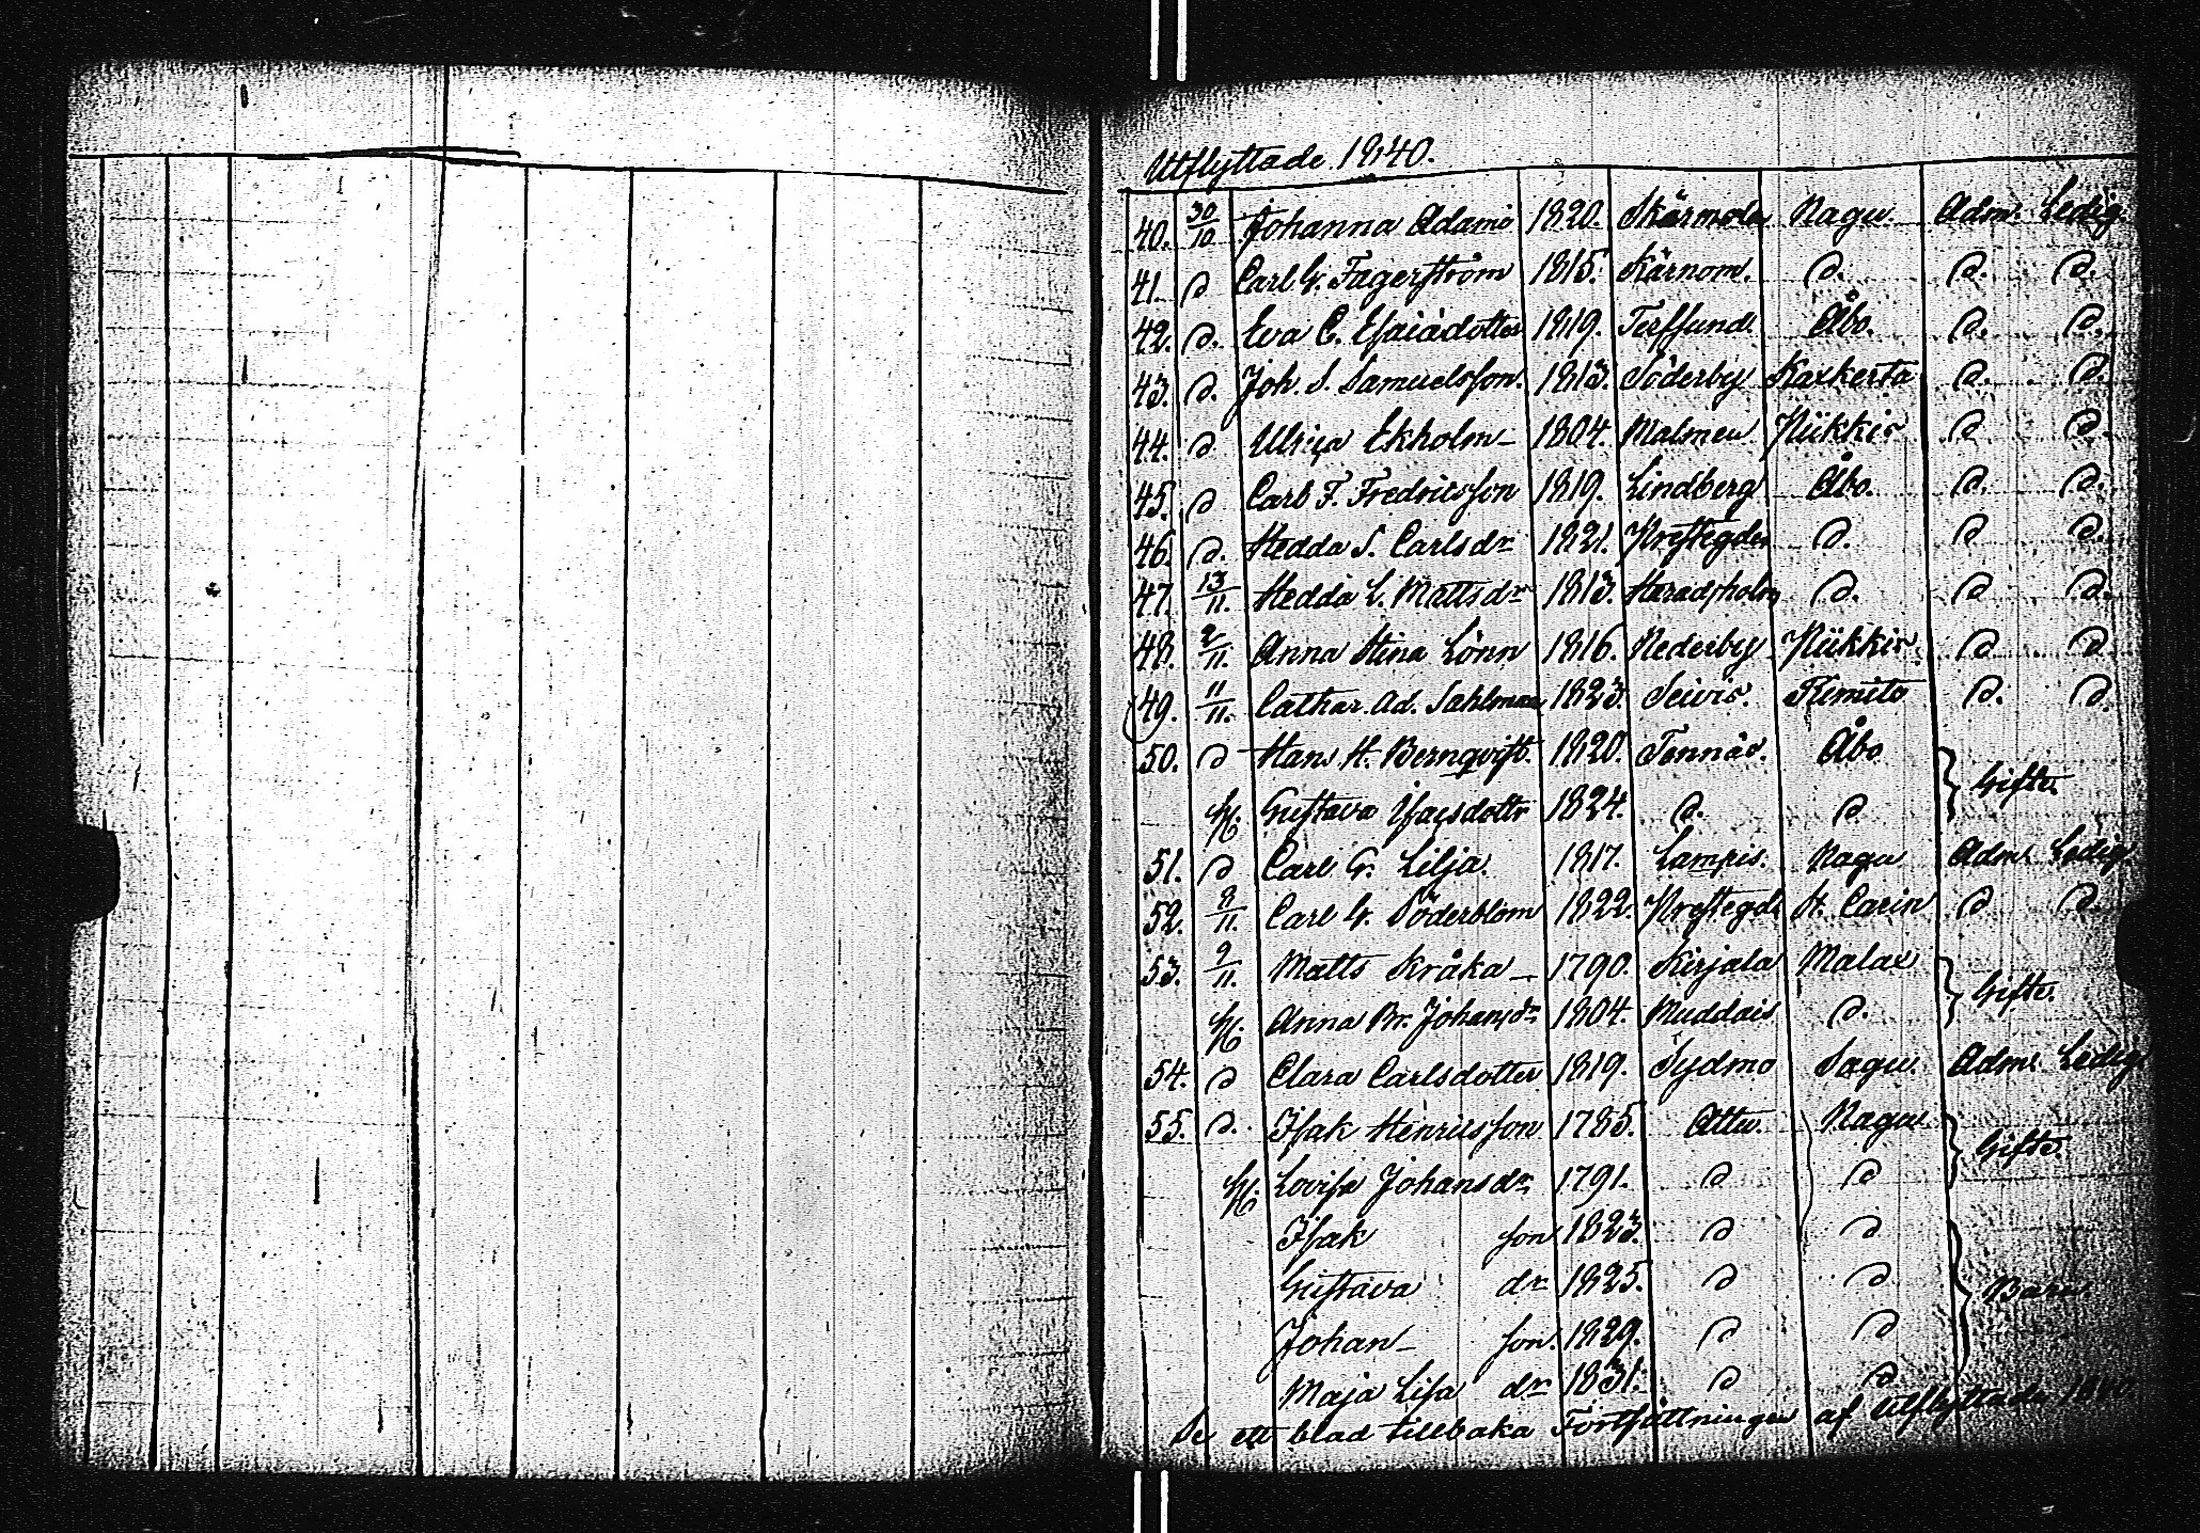 Utflyttade 1840.
40. 30/10 Johanna Adamsdr 1820. Skärmola Nagu. Adm. Ledig.
41. d Carl G. Fagerström 1815. Kärnom. d. d. d.
42. d. Eva C. Esaiädotter 1819. Terfsund. Åbo. d. d.
43. d. Joh. S. Samuelsson. 1813. Söderby Kaxkerta d. d.
44. d Ulrica Ekholm 1804. Malmen Nükkis d d.
45. d Carl F. Fredricsson 1819. Lindberg Åbo. d. d.
46. d. Hedda S. Carlsdr 1821. Prestegden d. d d.
47. 13/11. Hedda L. Mattsdr 1813. Haradsholm d. d d.
48. 2/11. Anna Stina Lönn 1816. Nederby d d
49. 11/11. Cathar. Ad. Sahlman 1823. Seivis. Kimito d. d.
50. d Hans H. Bernqvist. 1820. Tennäs. Åbo Gifte
H. Gustava Isacsdottr 1824. d. d
51. d Carl G. Lilja. 1817. Lampis. Nagu Adm. Ledig.
52. 8/11. Carl G. Söderblom 1822. Prestegdn St. Carin d d
53. 9/11. Matts Kråka 1790. Kirjala Malax Gifte.
H. Anna Br. Johansdr 1804. Muddais d.
54. d Clara Carlsdotter 1819. Sydmo Sagu. Adm. Ledig
55. d. Isak Henricsson 1785. Attu. Nagu Gifte.
H. Lovisa Johansdr 1791. d d
Isak son 1823. d d
Gustava dr 1825. d d Barn
Johan son. 1829. d d
Maja Lisa dr 1831. d d
Se ett blad tillbaka Fortsättningen af Utflyttade 1840